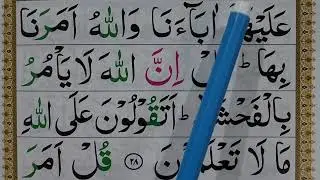 عَلَيْهَآ اٰبَآءَنَا وَاللّٰهُ اَمَرَنَا
بِهَا ؕ اِنَّ اللّٰهَ لَا يَاْمُرُ
بِالْفَحْشَ ؕ اَتَقُوْلُوْنَ عَلَى اللّٰهِ
مَا لَا تَعْلَمُوْنَ ﴿۲۸﴾ قُلْ اَمَرَ